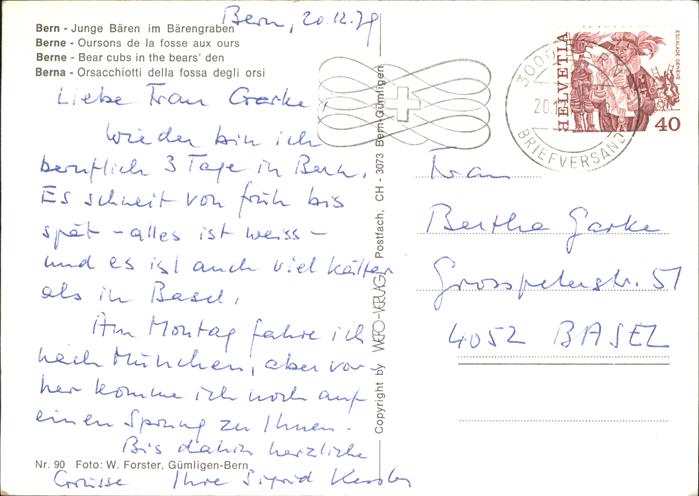 Bern, 20.12.79
Bern - Junge Bären im Bärengraben
Berne - Oursons de la fosse aux ours
Berne - Bear cubs in the bears' den
Berna - Orsacchiotti della fossa degli orsi
Liebe Frau Garke,
Wieder bin ich
beruflich 3 Tage in Bern.
Es schneit von früh bis
spät - alles ist weiss -
und es ist auch viel kälter
als in Basel.
Am Montag fahre ich
nach München, aber vor-
her komme ich noch auf
einen Sprung zu Ihnen.
Bis dahin herzliche
Grüsse Ihre Sigrid Kessler
Nr. 90 Foto: W. Forster, Gümligen-Bern
Copyright by WEFO-VERLAG Postfach, CH - 3073 Bern-Gümligen
3000
20.1
BRIEFVERSAND
HELVETIA
ESCALADE GENÈVE
40
Frau
Bertha Garke
Grosspeterstr. 51
4052 BASEL